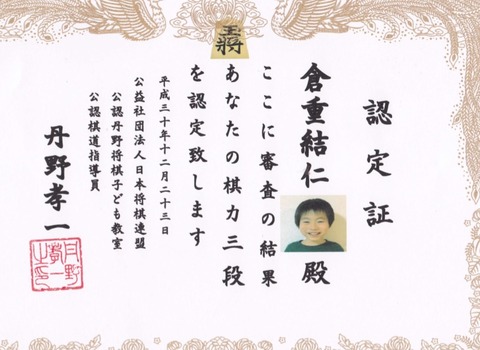 認定証
倉重結仁 殿
ここに審査の結果
あなたの棋力三段
を認定致します
平成三十年十二月二十三日
公益社団法人日本将棋連盟
公認丹野将棋子ども教室
公認棋道指導員
丹野孝一
王将